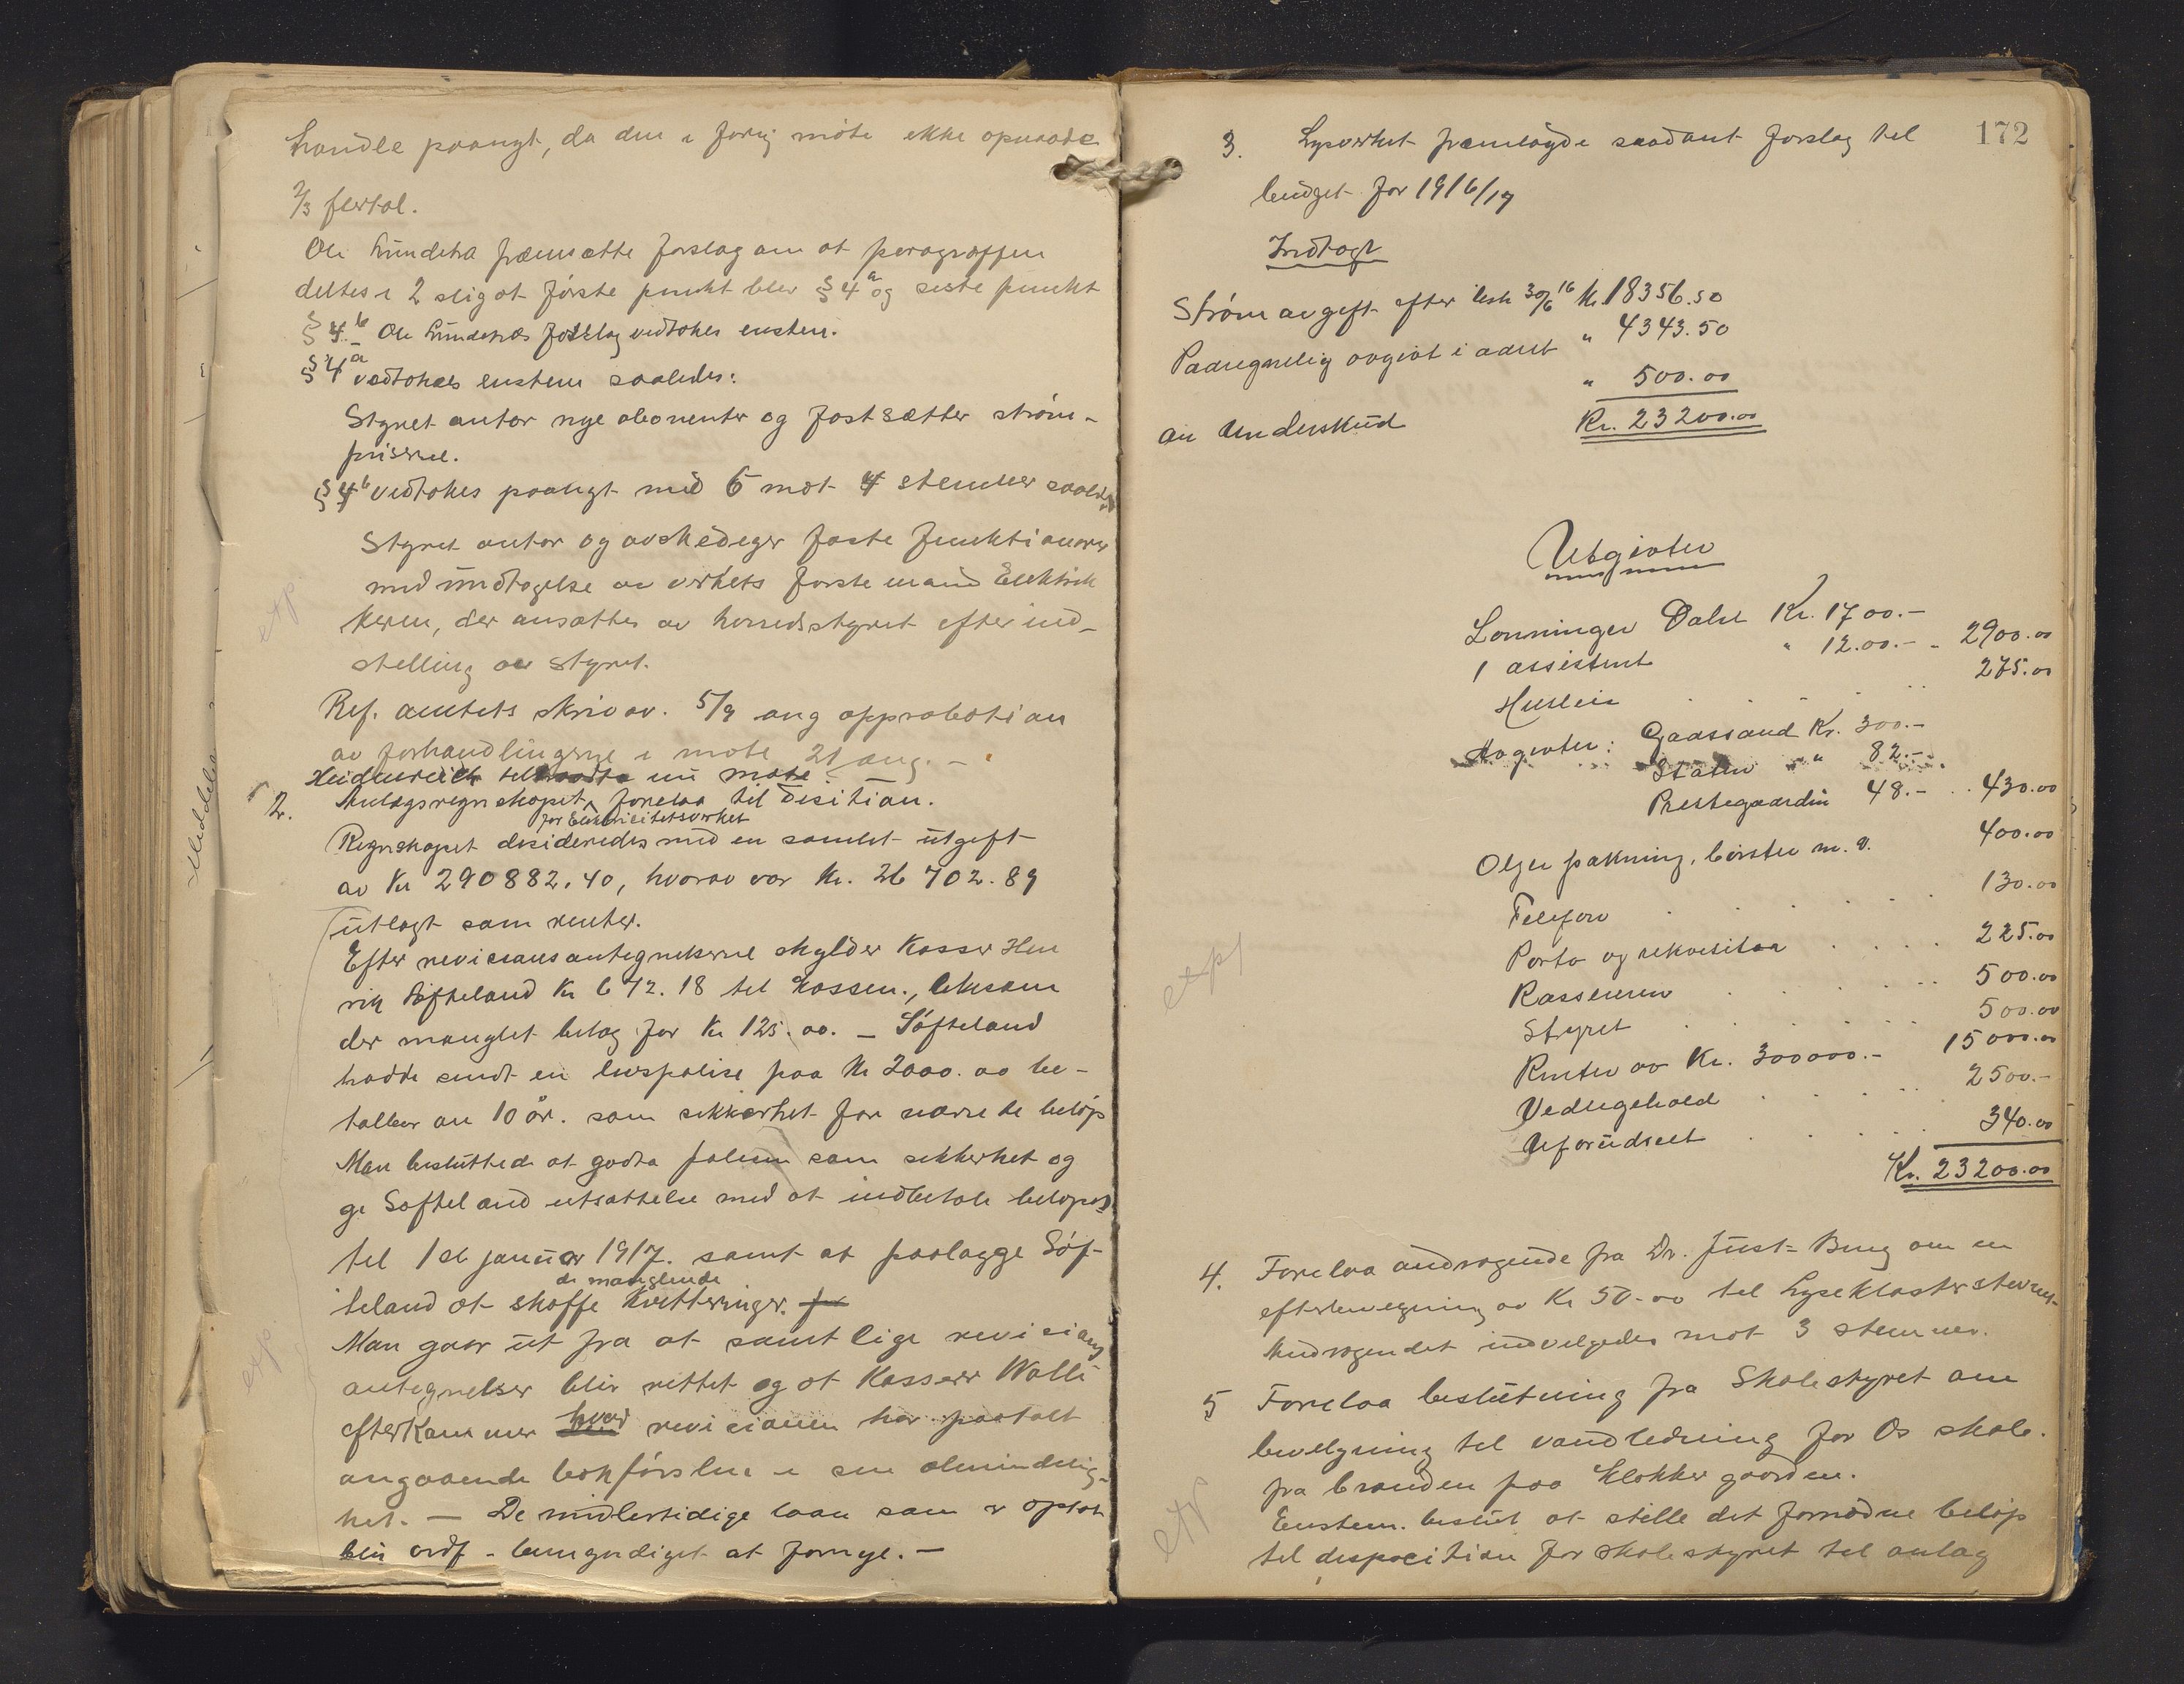 handle paanyt, da den i forrig møte ikke opnaadde
2/3 flertal.
Ole Lundetræ fremsatte forslag om at paragraffen
deltes i 2 slig at første punkt blev § 4 a og siste punkt
§ 4 b. Ole Lundetræs forslag vedtokes enstem.
§ 4 a vedtokes enstem saaledes:
Styret antar nye abonenter og fastsætter strøm-
priserne.
§ 4 b vedtokes paanyt med 6 mot 4 stemmer saaledes
Styret antar og avskediger faste funktionærer
med undtagelse av verkets første mand Elektrik
keren, der ansættes av herredsstyret efter ind-
stilling av styret.
Ref. amtets skriv av. 5/9 ang approbation
av forhandlingerne i møte 21 aug. -
Heidenreich tiltraadte nu møte.
2. Anlægsregnskapet forelaa til desition.
for Elektricitetsverket
Regnskapet desideredes med en samlet utgift
av Kr 290882.40, hvorav var Kr. 26702.89
utlagt som renter.
Efter revisionsantegnelserne skylder Kasser Hen
rik Søfteland Kr 672.18 til kassen., likesom
der manglet bilag for Kr 125.00. - Søfteland
hadde sendt en livspolise paa Kr 2000.00 be-
talbar om 10 år. som sikkerhet for nævnte beløp
Man besluttede at godta polisen som sikkerhet og
gi Søfteland utsættelse med at indbetale beløpet
til 1st januar 1917. samt at paalægge Søf-
teland at skaffe kvitteringer.
de manglende
Man gaar ut fra at samtlige revisions
antegnelser blir rettet og at Kasserer Walle
efterkommer hvad revisionen har paatalt
angaaende bokførslen i sin almindelig-
het. - De midlertidige laan som er optat
blir ordf. bemyndiget at fornye. -
172
3. Lysverket fremlagde saadant forslag til
budget for 1916/17
Indtægt
Strøm avgift efter liste 30/6 16 Kr. 18356.50
Paaregnelig avgivt i aaret " 4343.50
" 500.00
an Underskud Kr. 23200.00
Utgivter
Lønninger Dale Kr. 1700.-
1 assistent " 1200.- - 2900.00
Husleie 275.00
Avgivter: Gaassand Kr. 300.-
Stålen " 82.-
Prestegaarden 48.- 430.00
Oljer pakning, børster m. v. 400.00
Telefon 130.00
Porto og rekvisita 225.00
Kassereren 500.00
Styret 500.00
Renter av Kr. 300000.- 15000.00
Vedligehold 2500.-
Uforudseet 340.00
Kr. 23200.00
4. Forelaa andragende fra Dr. Just-Bing om en
efterbevilgning av Kr 50.00 til Lysekloster stevnet.
Andragendet indvilgedes mot 3 stemmer.
5 Forelaa beslutning fra Skolestyret om
bevilgning til vandledning for Os skole.
fra brønden paa Klokkergaarden.
Enstem. beslut at stille det fornødne beløp
til disposition for skolestyret til anlæg